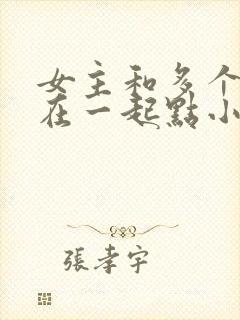 女主和多个
在一起點小
張孝宇